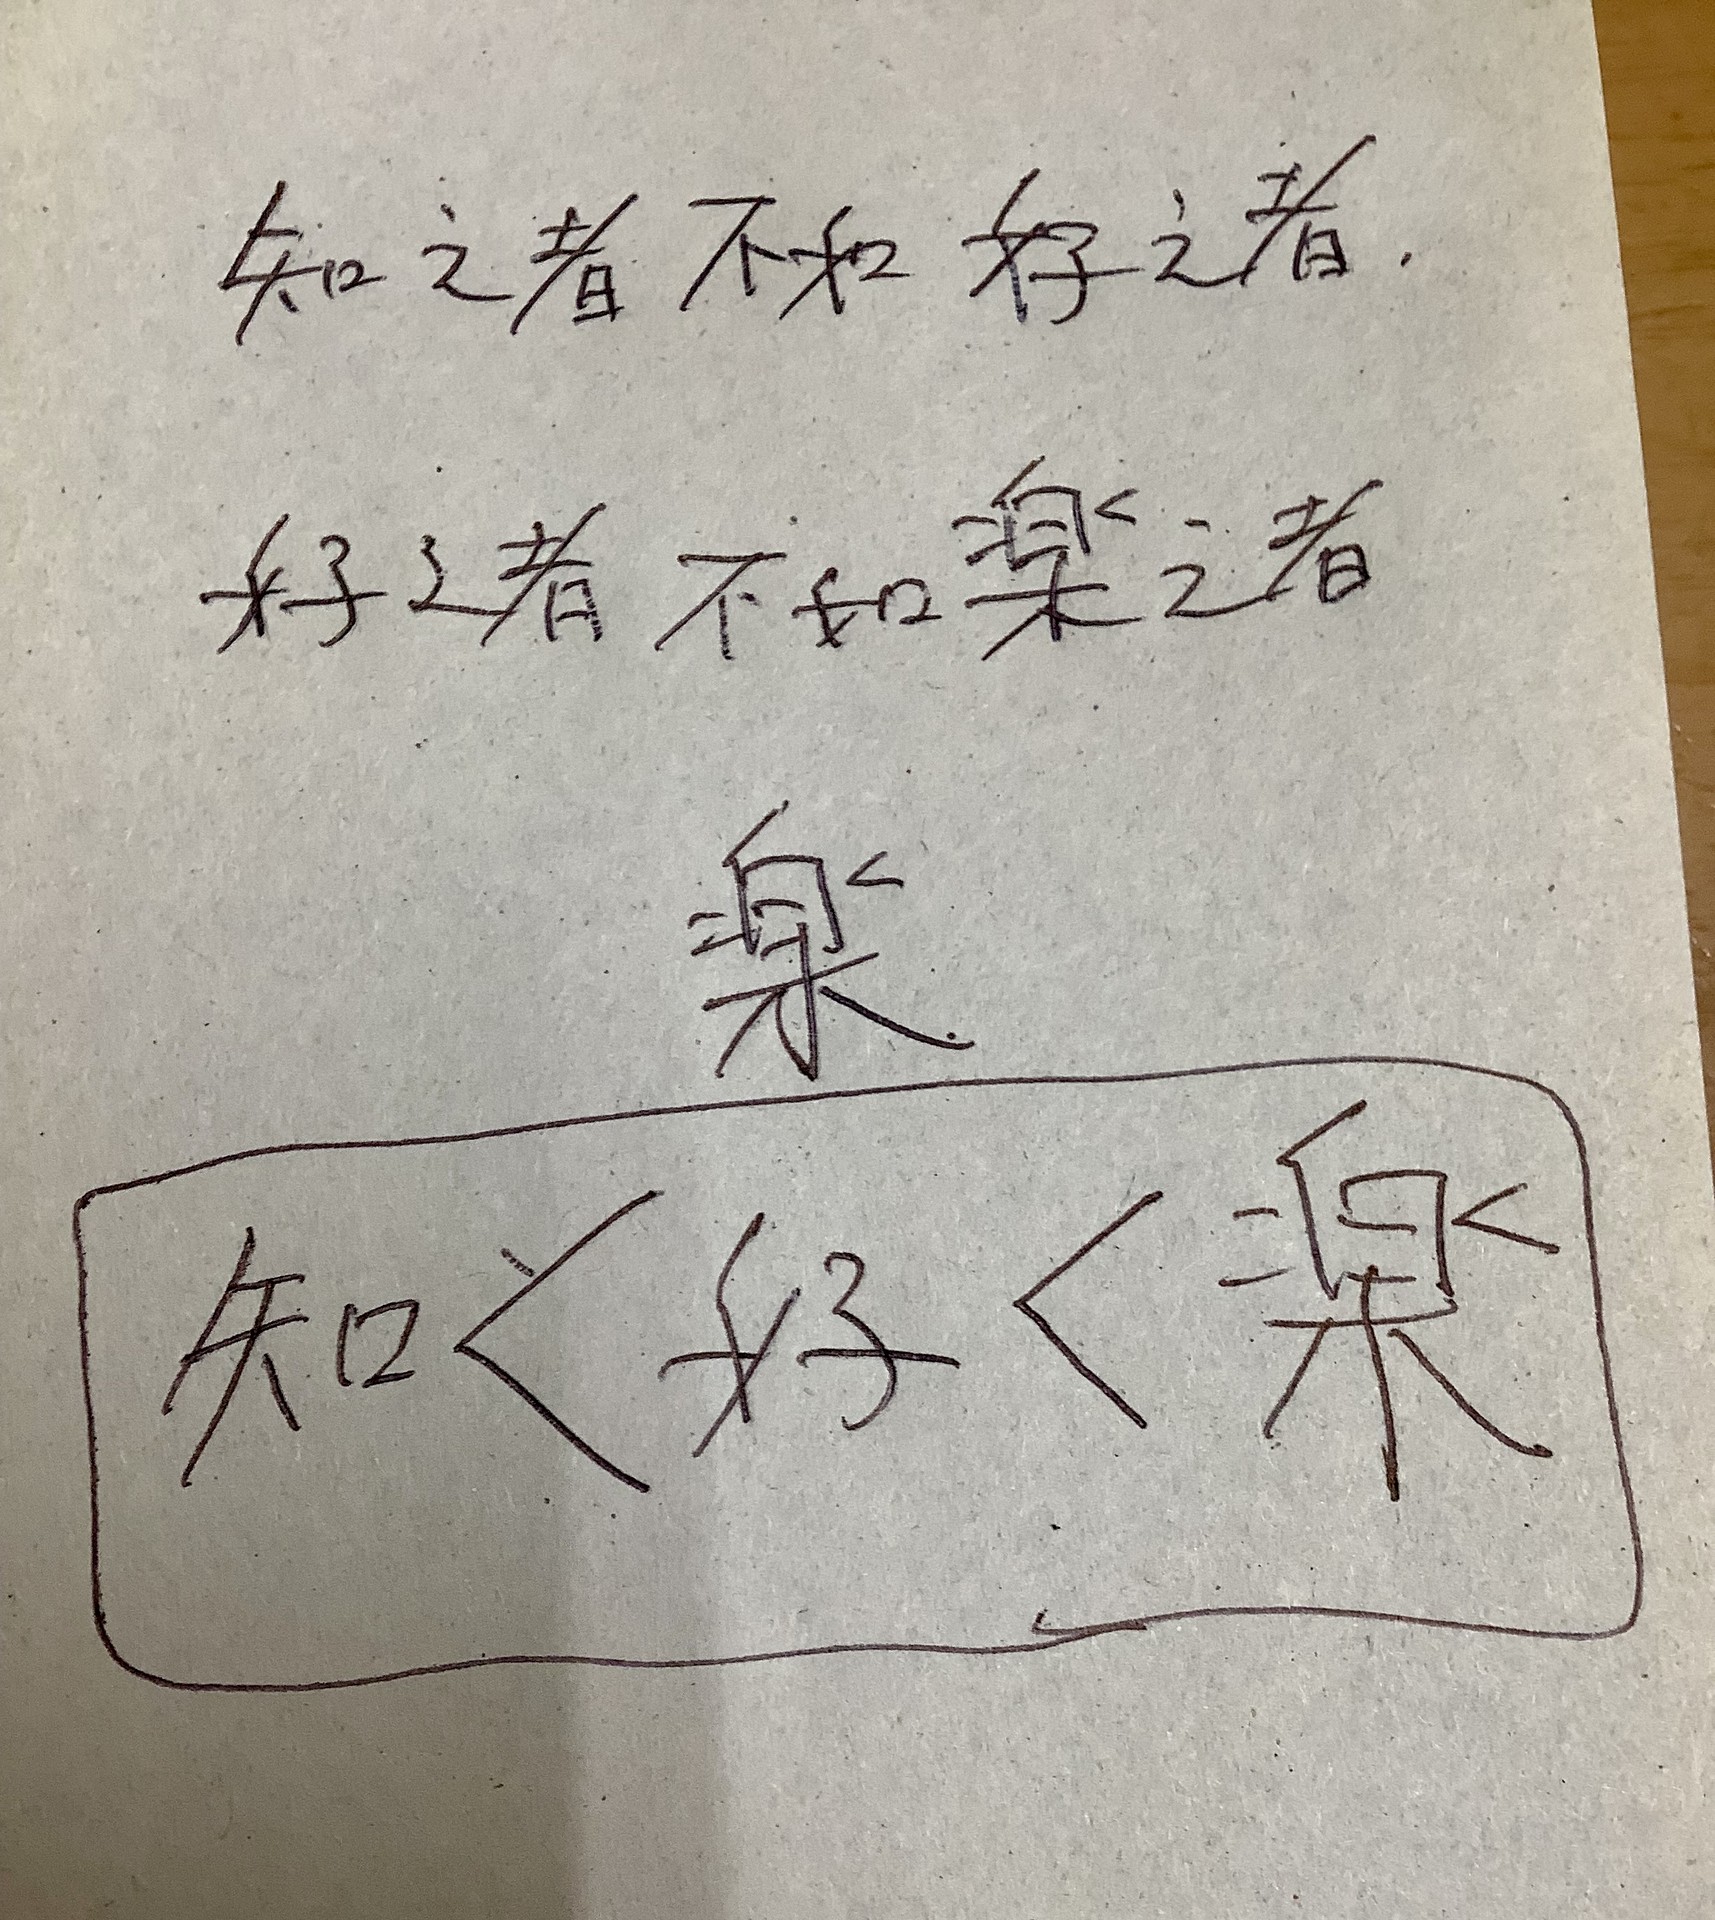 知之者不如好之者.
好之者不如楽之者
楽.
知<好<楽